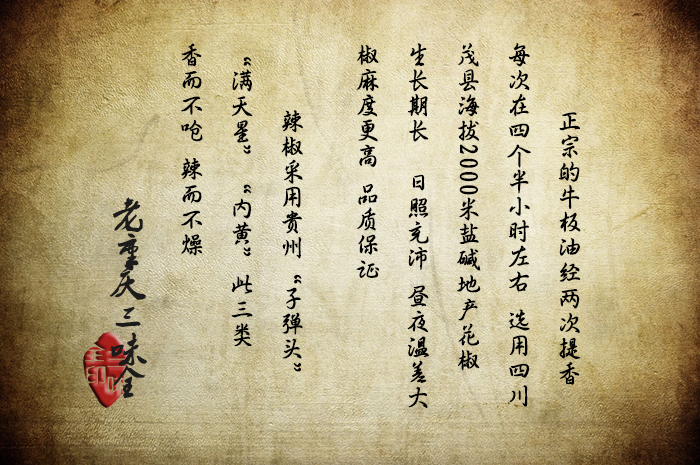 正宗的牛板油经两次提香
每次在四个半小时左右 选用四川
茂县海拔2000米盐碱地产花椒
生长期长 日照充沛 昼夜温差大
椒麻度更高 品质保证
辣椒采用贵州“子弹头”
“满天星” “内黄” 此三类
香而不呛 辣而不燥
老重庆三味全